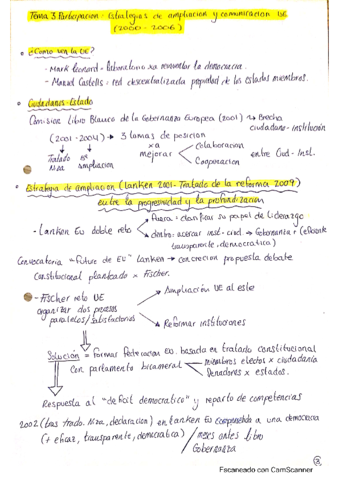 Tema 3 Participacion: Estrategias de ampliacion y comunicacion UE
(2000 - 2006)
• ¿Como ven la UE?
- Mark Leonard = laboratorio xa reinventar la democracia.
- Manuel Castells = red descentralizada propiedad de los Estados miembros.
• Ciudadanos-Estado
Comision Libro Blanco de la Gobernanza Europea (2001) → Brecha
ciudadano-institución
(2001 - 2004) → 3 lamas de posicion
Tratado Niza
ampliacion
xa mejorar
colaboracion
Cooperacion
entre Ciud-Inst.
• Estrategia de ampliacion (Laeken 2001 - Tratado de la reforma 2009)
entre la progresividad y la profundizacion
- Laeken Eu doble reto
fuera: clarificar su papel de liderazgo
dentro: acercar inst-ciud → Gobernanza + (eficiente
transparente, democratica)
Convocatoria "Future de EU" Laeken → concrecion propuesta debate
Constitucional planteado x Fischer.
- Fischer reto UE
organizar dos procesos
paralelos/satisfactorios
Ampliación UE al este
Reformar instituciones
Solución = formar Federacion Eu. basada en tratado constitucional
Con parlamento bicameral
miembros electos x ciudadanía
Senadores x estados.
Respuesta al "deficit democratico" y reparto de competencias
2002 (tras tratado. Niza, declaracion) en Laeken EU comprometida a una democracia
(+ eficaz, transparente, democratica)
meses antes libro
Gobernanza
Escaneado con CamScanner